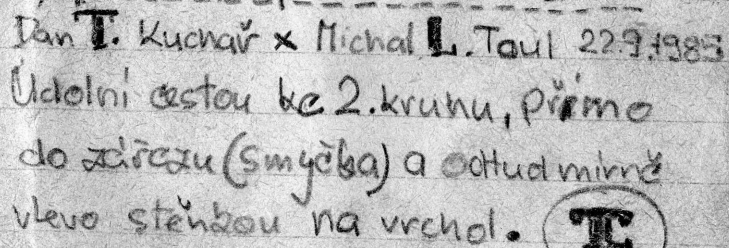 Dan T. Kuchař x Michal L. Toul 22.9.1985
Údolní cestou ke 2. kruhu, přímo
do zářezu (smyčka) a odtud mírně
vlevo stěnkou na vrchol.